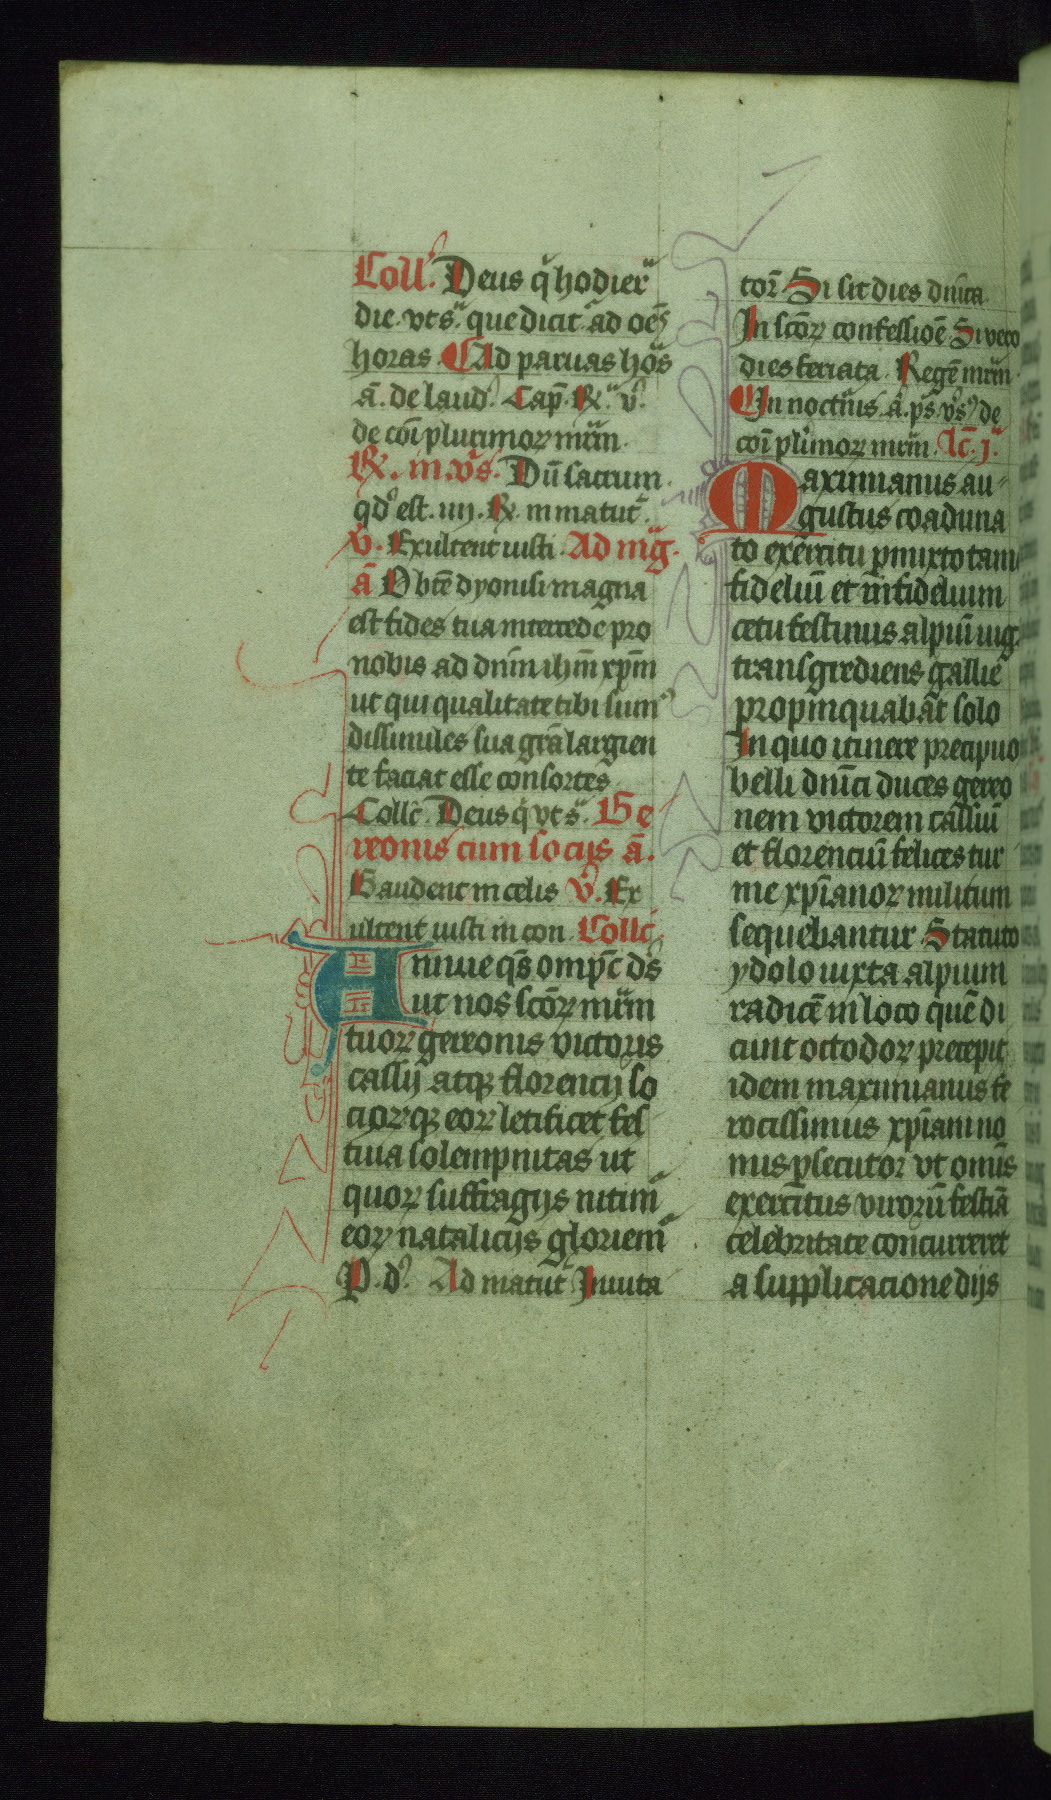 Coll̄. Deus q̇ hodier̄
die. vt s̄. que dicit᷑ ad oēs
horas. Ad paruas horas
ā. de laud᷑. Cap̄. ℟. v̄.
de cōi plurimoꝝ mr̄m.
℟. in .v̄s. Dū sacrum.
qd᷑ est. iiij. ℟. in matut᷑.
v̄. Exultent iusti. Ad mḡ.
ā O btē dyonisi magna
est fides tua intercede pro
nobis ad dn̄m ihm̄ xp̄m
ut qui qualitate tibi sum᷒
dissimiles sua gr̄a largien
te faciat esse consortes
Collc̄. Deus q̇ vt s̄. Ge
reonis cum socijs ā.
Gaudent in celis v̄. Ex
ultent iusti in con. Collc̄
Annue qs̄ omp̄c ds̄
ut nos sc̄oꝝ mr̄m
tuoꝝ gereonis victoris
cassij atqꝫ florencij so
cioꝝqꝫ eoꝝ letificet fes
tiua solempnitas ut
quoꝝ suffragijs nitim᷑
eoꝝ natalicijs gloriem᷑
P. d᷑. Ad matut᷑ Inuita
tor̄ Si sit dies dn̄ica
In sc̄oꝝ confessiōe Si vero
dies feriata Regē mr̄m.
In noct᷑nis ā. ps̄ v̄s de
cōi pl᷑imoꝝ mr̄m. Lc̄. j.ᵃ
Maximianus au
gustus coaduna
to exercitu ꝑmixto tam
fideliū et infidelium
cetu festinus alpiū iug
transgrediens gallie
propinquabāt solo
In quo itinere precipuo
belli dn̄ici duces gereo
nem victorem cassiū
et florenciū felices tur
me xp̄ianoꝝ militum
sequebantur Statuto
ydolo iuxta alpium
radicē in loco quē di
cunt octodoꝝ precepit
idem maximianus fe
rocissimus xp̄iani no
minis ꝑsecutor vt omīs
exercitus virorū festiā
celebritate concurreret
a supplicacione dijs